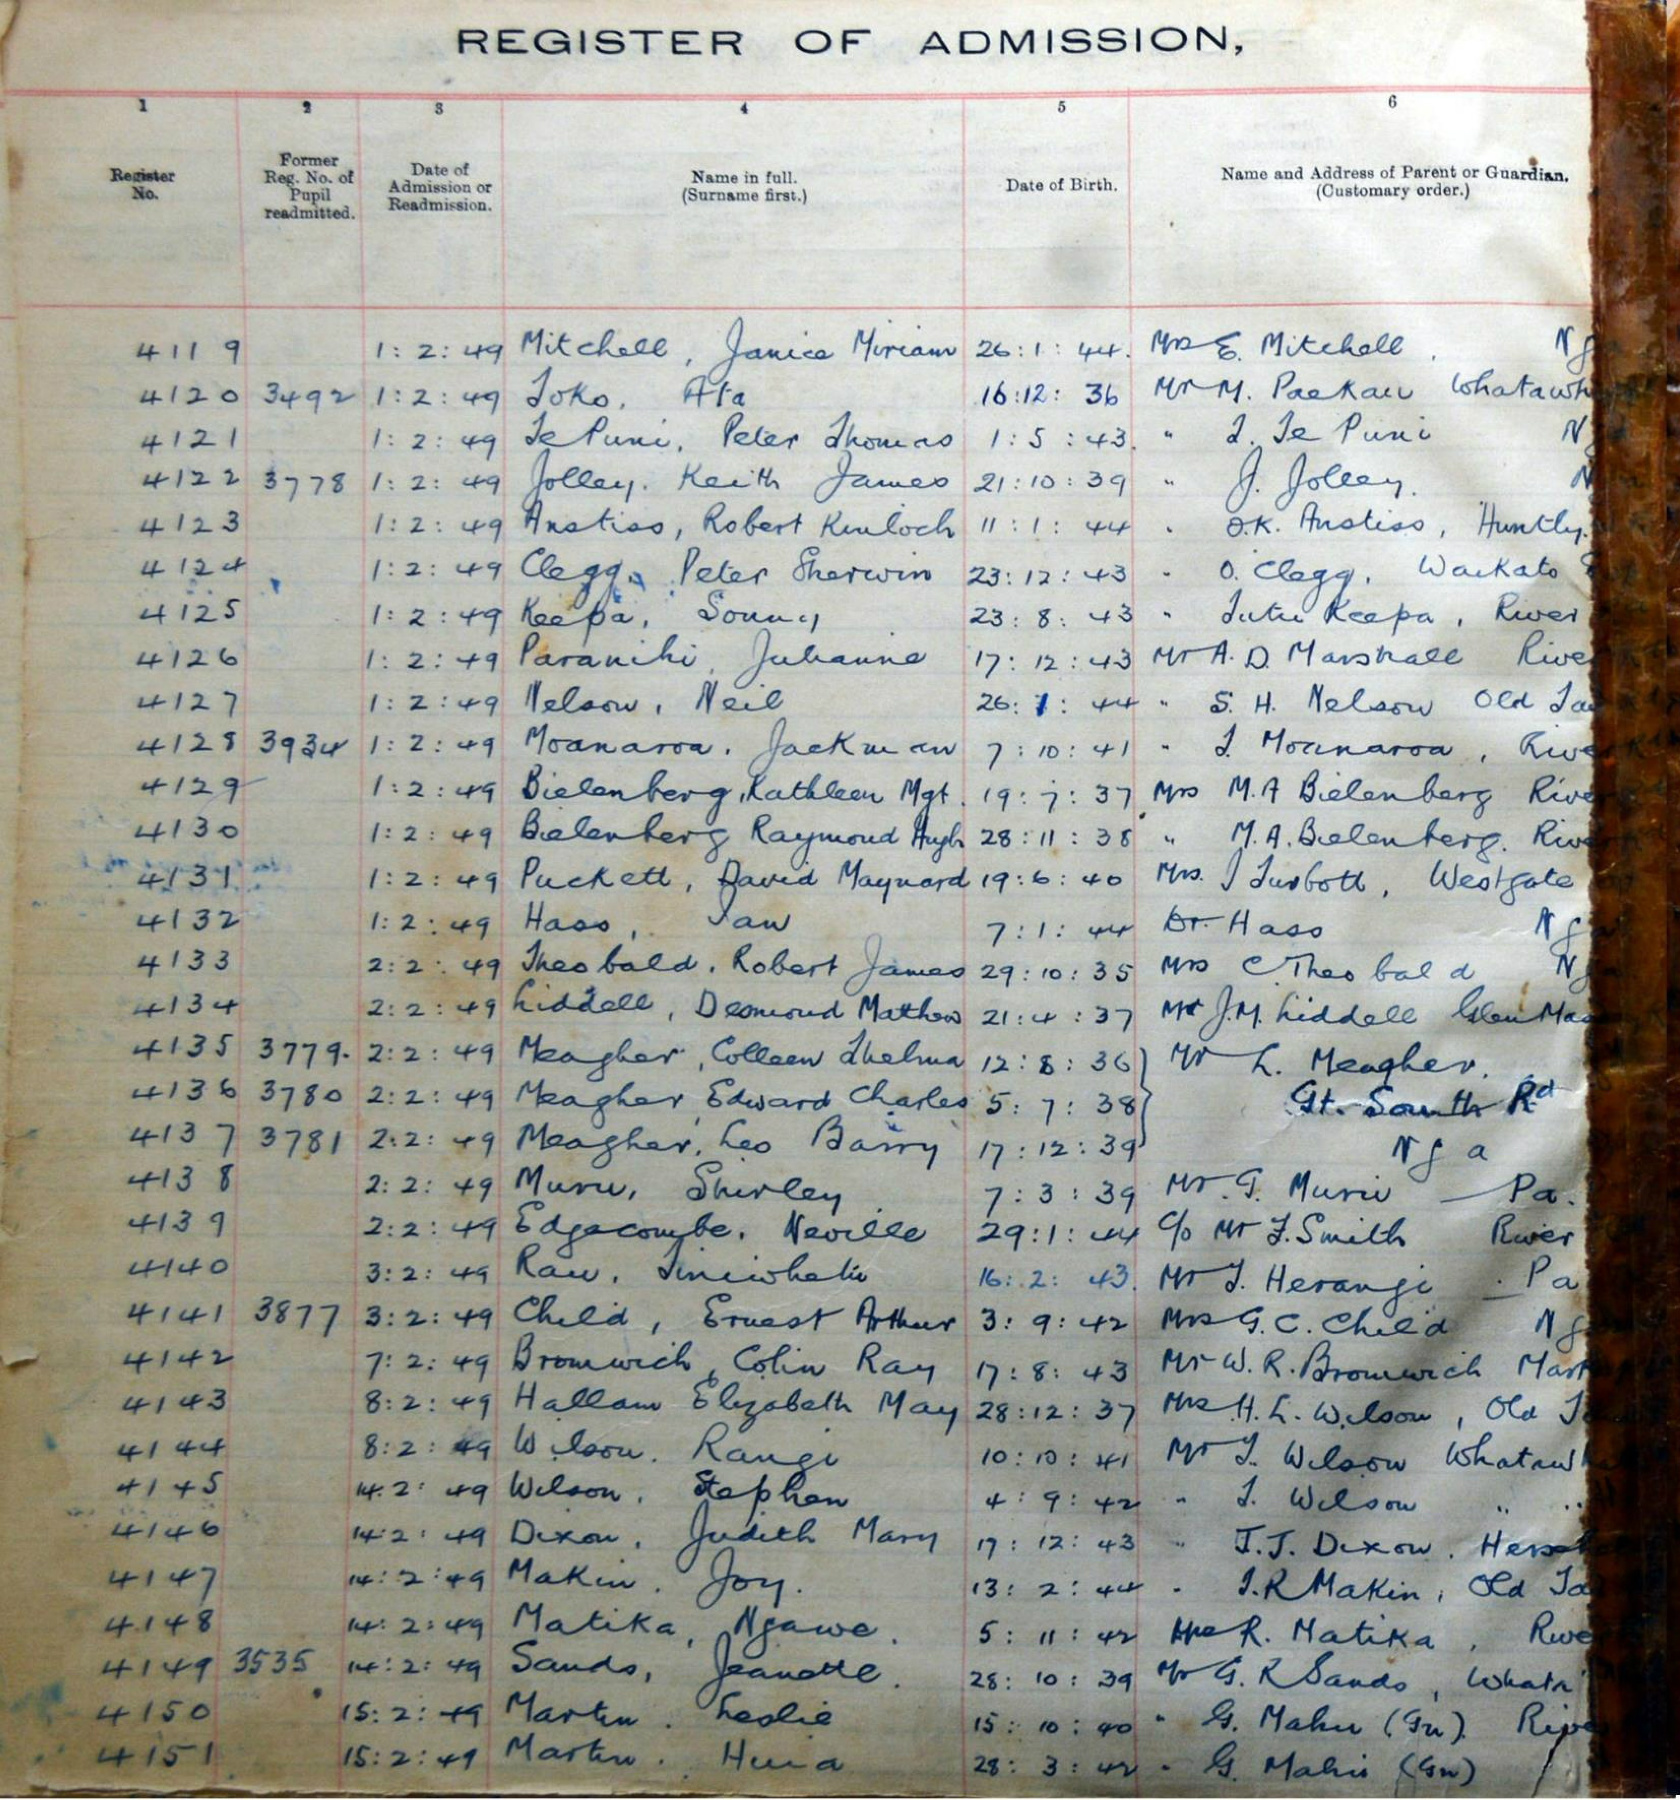 REGISTER OF ADMISSION,
1 2 3 4 5 6
Register No. Former Reg. No. of Pupil readmitted. Date of Admission or Readmission. Name in full. (Surname first.) Date of Birth. Name and Address of Parent or Guardian. (Customary order.)
4119 1:2:49 Mitchell, Janice Miriam 26:1:44. Mrs E. Mitchell. Ng
4120 3492 1:2:49 Toko, Ata 16:12:36 Mr M. Paekau Whatawh
4121 1:2:49 Te Puni, Peter Thomas 1:5:43. " T. Te Puni N
4122 3778 1:2:49 Jolley. Keith James 21:10:39 " J. Jolley. N
4123 1:2:49 Anstiss, Robert Kinloch 11:1:44 " O.K. Anstiss, Huntly.
4124 1:2:49 Clegg, Peter Sherwin 23:12:43 " O. Clegg, Waikato
4125 1:2:49 Keepa, Sonny 23:8:43 " Tutu Keepa, River
4126 1:2:49 Paranihi, Julianne 17:12:43 Mr A. D. Marshall Rive
4127 1:2:49 Nelson, Neil 26:1:44 " S. H. Nelson Old Ta
4128 3934 1:2:49 Moanaroa, Jackman 7:10:41 " T. Moanaroa, Rive
4129 1:2:49 Bielenberg, Kathleen Mgt. 19:7:37 Mrs M.A Bielenberg Rive
4130 1:2:49 Bielenberg Raymond Hugh 28:11:38 " M.A. Bielenberg. Rive
4131 1:2:49 Puckett, David Maynard 19:6:40 Mrs. J Turbott, Westgate
4132 1:2:49 Hass, Ian 7:1:44 Dr. Hass Ng
4133 2:2:49 Theobald, Robert James 29:10:35 Mrs C Theobald N
4134 2:2:49 Liddell, Desmond Mathew 21:4:37 Mr J.M. Liddell Glen Mas
4135 3779. 2:2:49 Meagher, Colleen Thelma 12:8:36 } Mr L. Meagher.
4136 3780 2:2:49 Meagher Edward Charles 5:7:38 } Gt. South Rd
4137 3781 2:2:49 Meagher, Leo Barry 17:12:39 } Nga
4138 2:2:49 Muru, Shirley 7:3:39 Mr. G. Muru — Pa.
4139 2:2:49 Edgecombe, Neville 29:1:44 c/o Mr F. Smith River
4140 3:2:49 Rau, 16:2:43. Mr T. Herangi - Pa
4141 3877 3:2:49 Child, Ernest Arthur 3:9:42 Mrs G. C. Child Ng
4142 7:2:49 Bromwich, Colin Ray 17:8:43 Mr W. R. Bromwich Mart
4143 8:2:49 Hallam Elizabeth May 28:12:37 Mrs H. L. Wilson, Old T
4144 8:2:49 Wilson. Rangi 10:10:41 Mr T. Wilson Whataw
4145 14:2:49 Wilson, Stephen 4:9:42 " T. Wilson " "
4146 14:2:49 Dixon, Judith Mary 17:12:43 " J.J. Dixon.
4147 14:2:49 Makin. Joy. 13:2:44 " J.R Makin, Old Ta
4148 14:2:49 Matika, Ngawe. 5:11:42 Mrs R. Matika, Rive
4149 3535 14:2:49 Sands, Jeanette. 28:10:39 Mr G. R Sands, Whata
4150 15:2:49 Martin. Leslie 15:10:40 " G. Mahu (Gn). Rive
4151 15:2:49 Martin. Huia 28:3:42 " G. Mahu (Gn)